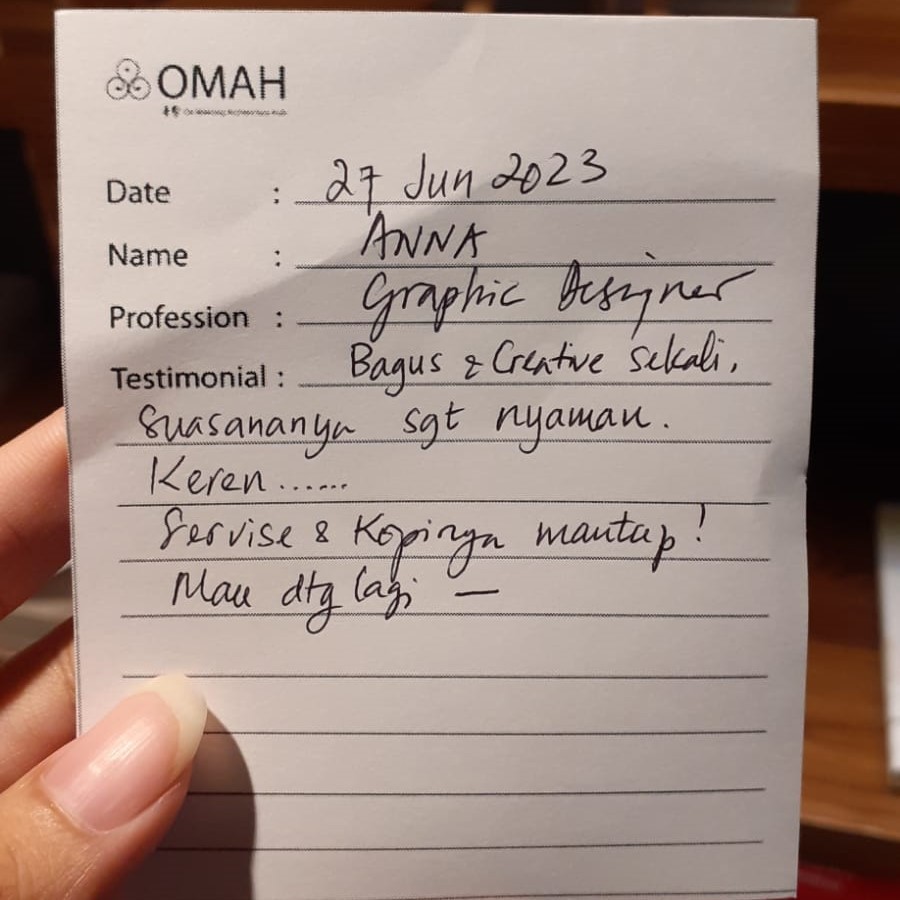 OMAH
Date : 27 Jun 2023
Name : ANNA
Profession : Graphic Designer
Testimonial : Bagus & Creative sekali,
Suasananya sgt nyaman.
Keren ......
Servise & Kopinya mantap!
Mau dtg lagi —